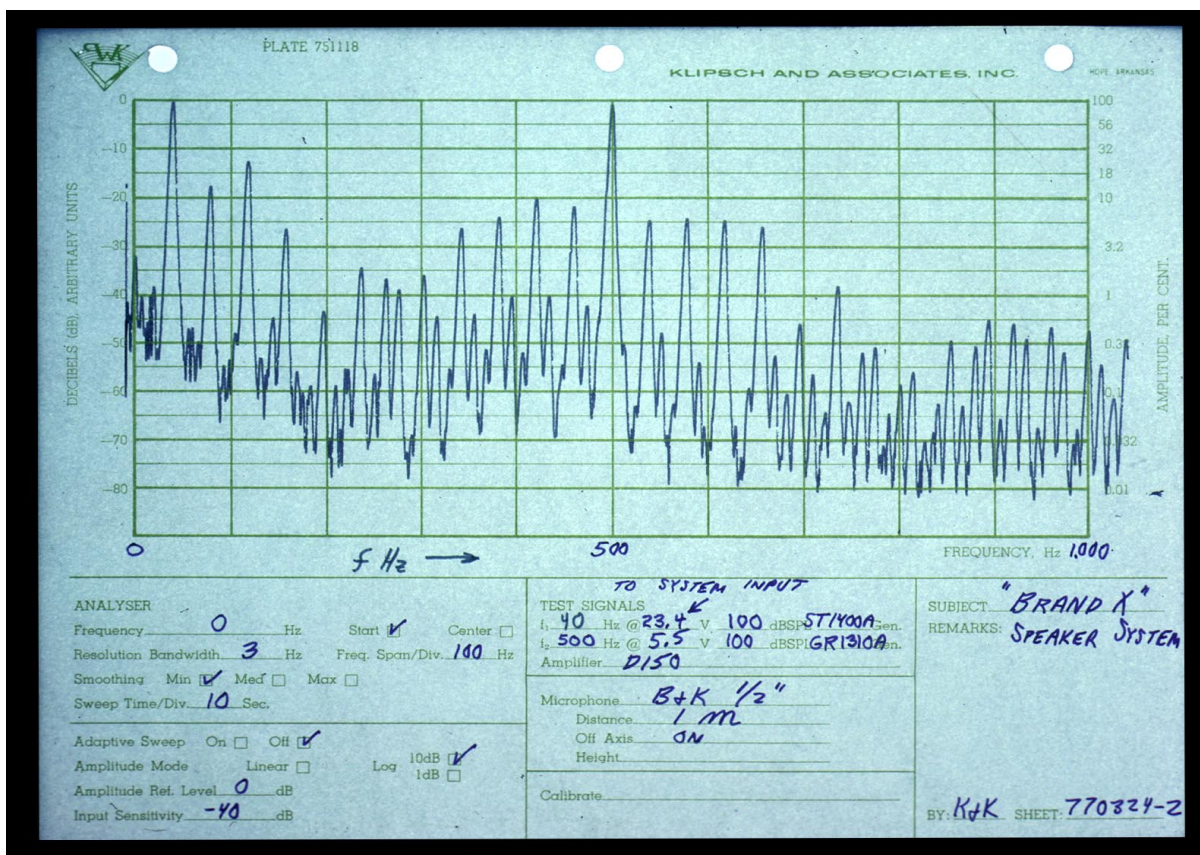 PWK
PLATE 751118
KLIPSCH AND ASSOCIATES, INC.
HOPE, ARKANSAS
0 100
56
-10 32
18
-20 10
-30 3.2
-40 1
-50 0.3
-60 0.1
-70 0.032
-80 0.01
DECIBELS (dB), ARBITRARY UNITS
AMPLITUDE, PER CENT.
0 500 FREQUENCY, Hz 1,000
f Hz →
ANALYSER
Frequency 0 Hz Start ☑ Center ☐
Resolution Bandwidth 3 Hz Freq. Span/Div. 100 Hz
Smoothing Min ☑ Med ☐ Max ☐
Sweep Time/Div. 10 Sec.
Adaptive Sweep On ☐ Off ☑
Amplitude Mode Linear ☐ Log 10dB ☑
1dB ☐
Amplitude Ref. Level 0 dB
Input Sensitivity -40 dB
TO SYSTEM INPUT
TEST SIGNALS
f₁ 40 Hz @ 23.4 V 100 dBSPL ST1400A Gen.
f₂ 500 Hz @ 5.5 V 100 dBSPL GR1310A Gen.
Amplifier D150
Microphone B+K 1/2"
Distance 1 m
Off Axis ON
Height
Calibrate
SUBJECT "BRAND X"
REMARKS: SPEAKER SYSTEM
BY: K+K SHEET: 770324-2